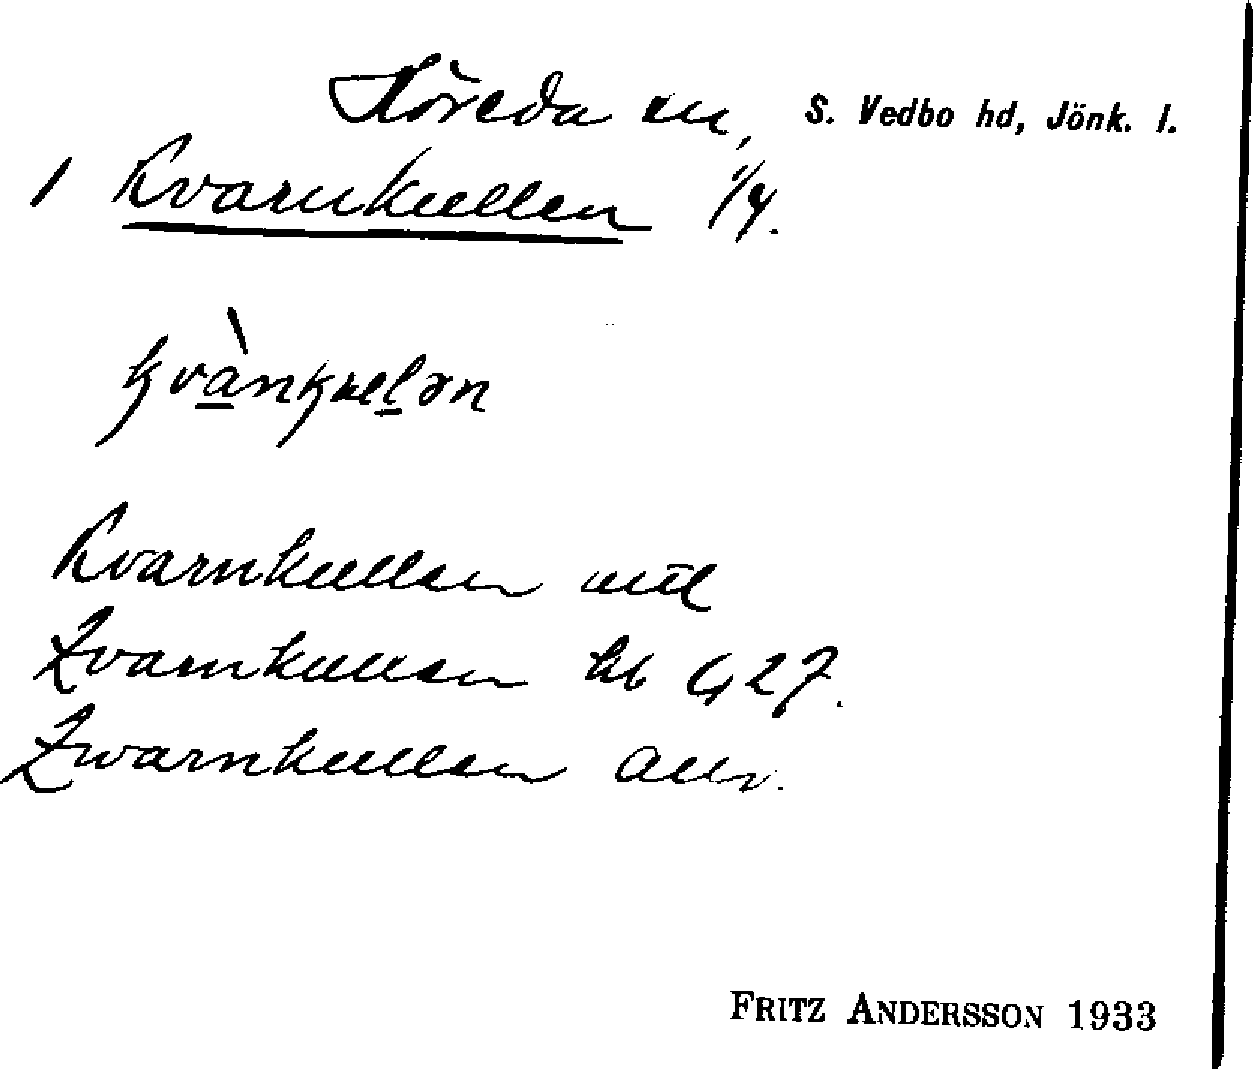 Höreda sn, S. Vedbo hd, Jönk. l.
1 Kvarnkullen 1/4.
kvànkulən
Kvarnkullen uttl
Kvarnkullen hb G 27.
Kvarnkullen auv.
FRITZ ANDERSSON 1933